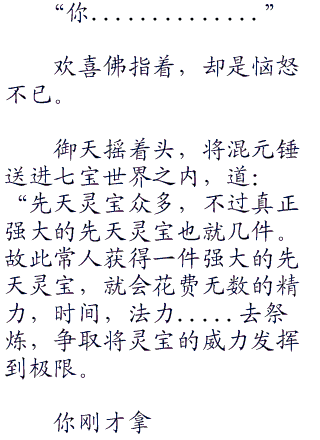 “你...............”
欢喜佛指着，却是恼怒
不已。
御天摇着头，将混元锤
送进七宝世界之内，道：
“先天灵宝众多，不过真正
强大的先天灵宝也就几件。
故此常人获得一件强大的先
天灵宝，就会花费无数的精
力，时间，法力.....去祭
炼，争取将灵宝的威力发挥
到极限。
你刚才拿